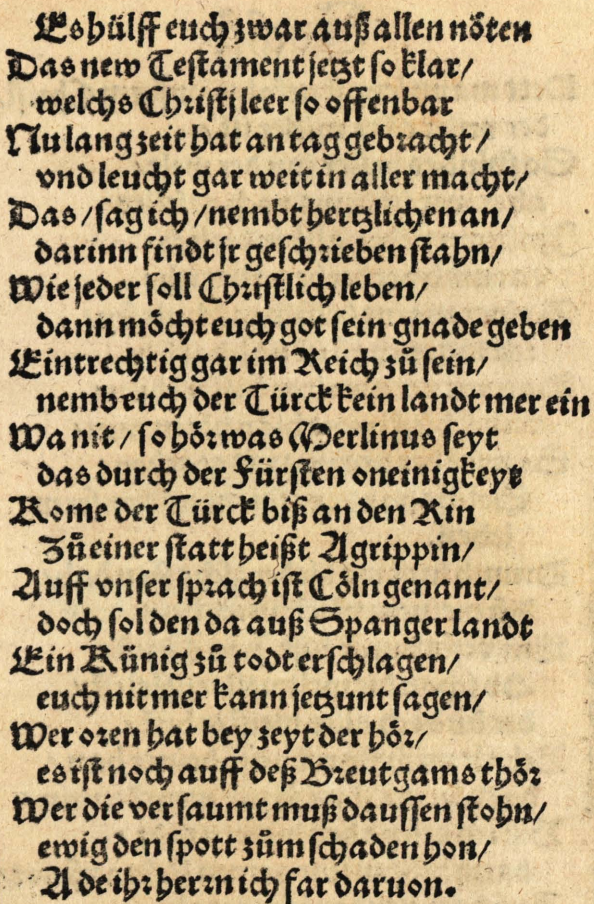 Es hülff euch zwar auß allen nöten
Das new Testament jetzt so klar/
welchs Christj leer so offenbar
Nu lang zeit hat an tag gebracht/
vnd leucht gar weit in aller macht/
Das/sag ich/nembt hertzlichen an/
darinn findt jr geschrieben stahn/
Wie jeder soll Christlich leben/
dann möcht euch got sein gnade geben
Eintrechtig gar im Reich zů sein/
nemb euch der Türck kein landt mer ein
Wa nit/so hör was Merlinus seyt
das durch der Fürsten oneinigkeyt
Kome der Türck biß an den Rin
Zů einer statt heißt Agrippin/
Auff vnser sprach ist Cöln genant/
doch sol den da auß Spanger landt
Ein Künig zů todt erschlagen/
euch nit mer kann jetzunt sagen/
Wer oren hat bey zeyt der hör/
es ist noch auff deß Breutgams thör
Wer die versaumt muß daussen stohn/
ewig den spott zům schaden hon/
Ade ihr herrn ich far daruon.